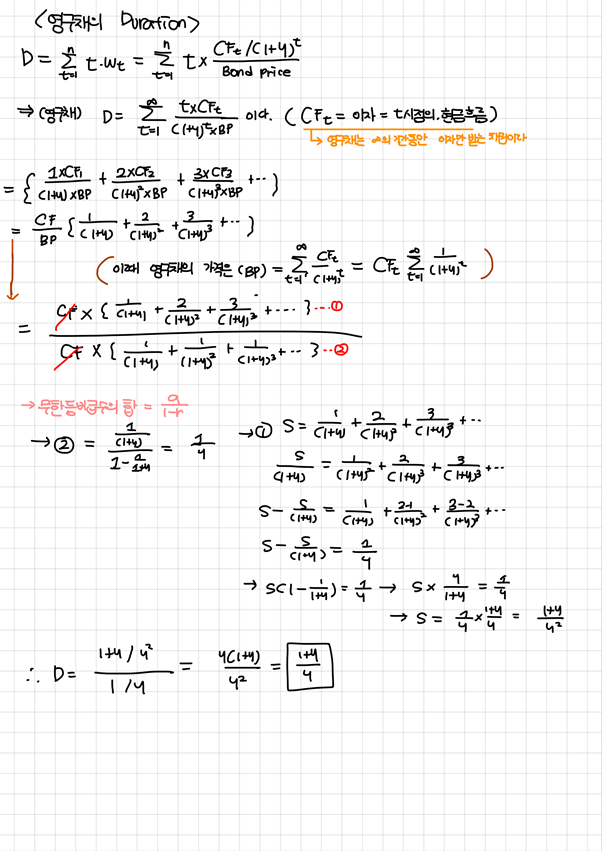 <영구채의 Duration>
D = Σ_{t=1}^{n} t·w_t = Σ_{t=1}^{n} t × (CF_t/(1+y)^t) / (Bond price)
⇒ (영구채) D = Σ_{t=1}^{∞} (t×CF_t)/((1+y)^t×BP) 이다. (CF_t = 이자 = t시점의 현금흐름)
↳ 영구채는 ∞의 기간동안 이자만 받는 채권이라
= { (1×CF_1)/((1+y)×BP) + (2×CF_2)/((1+y)^2×BP) + (3×CF_3)/((1+y)^3×BP) + ··· }
= CF/BP { 1/(1+y) + 2/(1+y)^2 + 3/(1+y)^3 + ··· }
( 이때 영구채의 가격은 (BP) = Σ_{t=1}^{∞} CF_t/(1+y)^t = CF_t Σ_{t=1}^{∞} 1/(1+y)^t )
= CF × { 1/(1+y) + 2/(1+y)^2 + 3/(1+y)^3 + ···· } ···①
CF × { 1/(1+y) + 1/(1+y)^2 + 1/(1+y)^3 + ··· } ···②
→ 무한등비급수의 합 = a/(1-r)
→ ② = (1/(1+y)) / (1 - a/(1+y)) = 1/y
→ ① S = 1/(1+y) + 2/(1+y)^2 + 3/(1+y)^3 + ···
S/(1+y) = 1/(1+y)^2 + 2/(1+y)^3 + 3/(1+y)^3 + ···
S - S/(1+y) = 1/(1+y) + (2-1)/(1+y)^2 + (3-2)/(1+y)^3 + ···
S - S/(1+y) = 1/y
→ S(1 - 1/(1+y)) = 1/y → S × y/(1+y) = 1/y
→ S = 1/y × (1+y)/y = (1+y)/y^2
∴ D = (1+y/y^2) / (1/y) = y(1+y)/y^2 = (1+y)/y